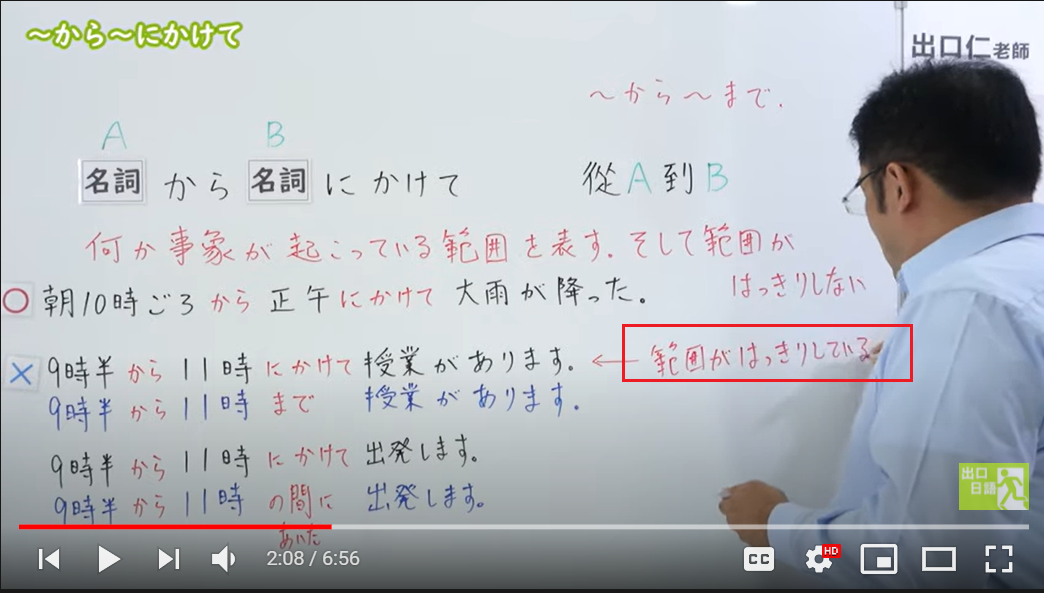 ～から～にかけて
出口仁老師
～から～まで.
A B
名詞 から 名詞 にかけて 從A到B
何か事象が起こっている範囲を表す. そして範囲が
はっきりしない
○ 朝10時ごろから正午にかけて大雨が降った。
× 9時半から11時にかけて授業があります。 ← 範囲がはっきりしている
9時半から11時まで 授業があります.
9時半から11時にかけて出発します。
9時半から11時の間に 出発します。
あいだ
出口
日語
2:08 / 6:56
CC
HD